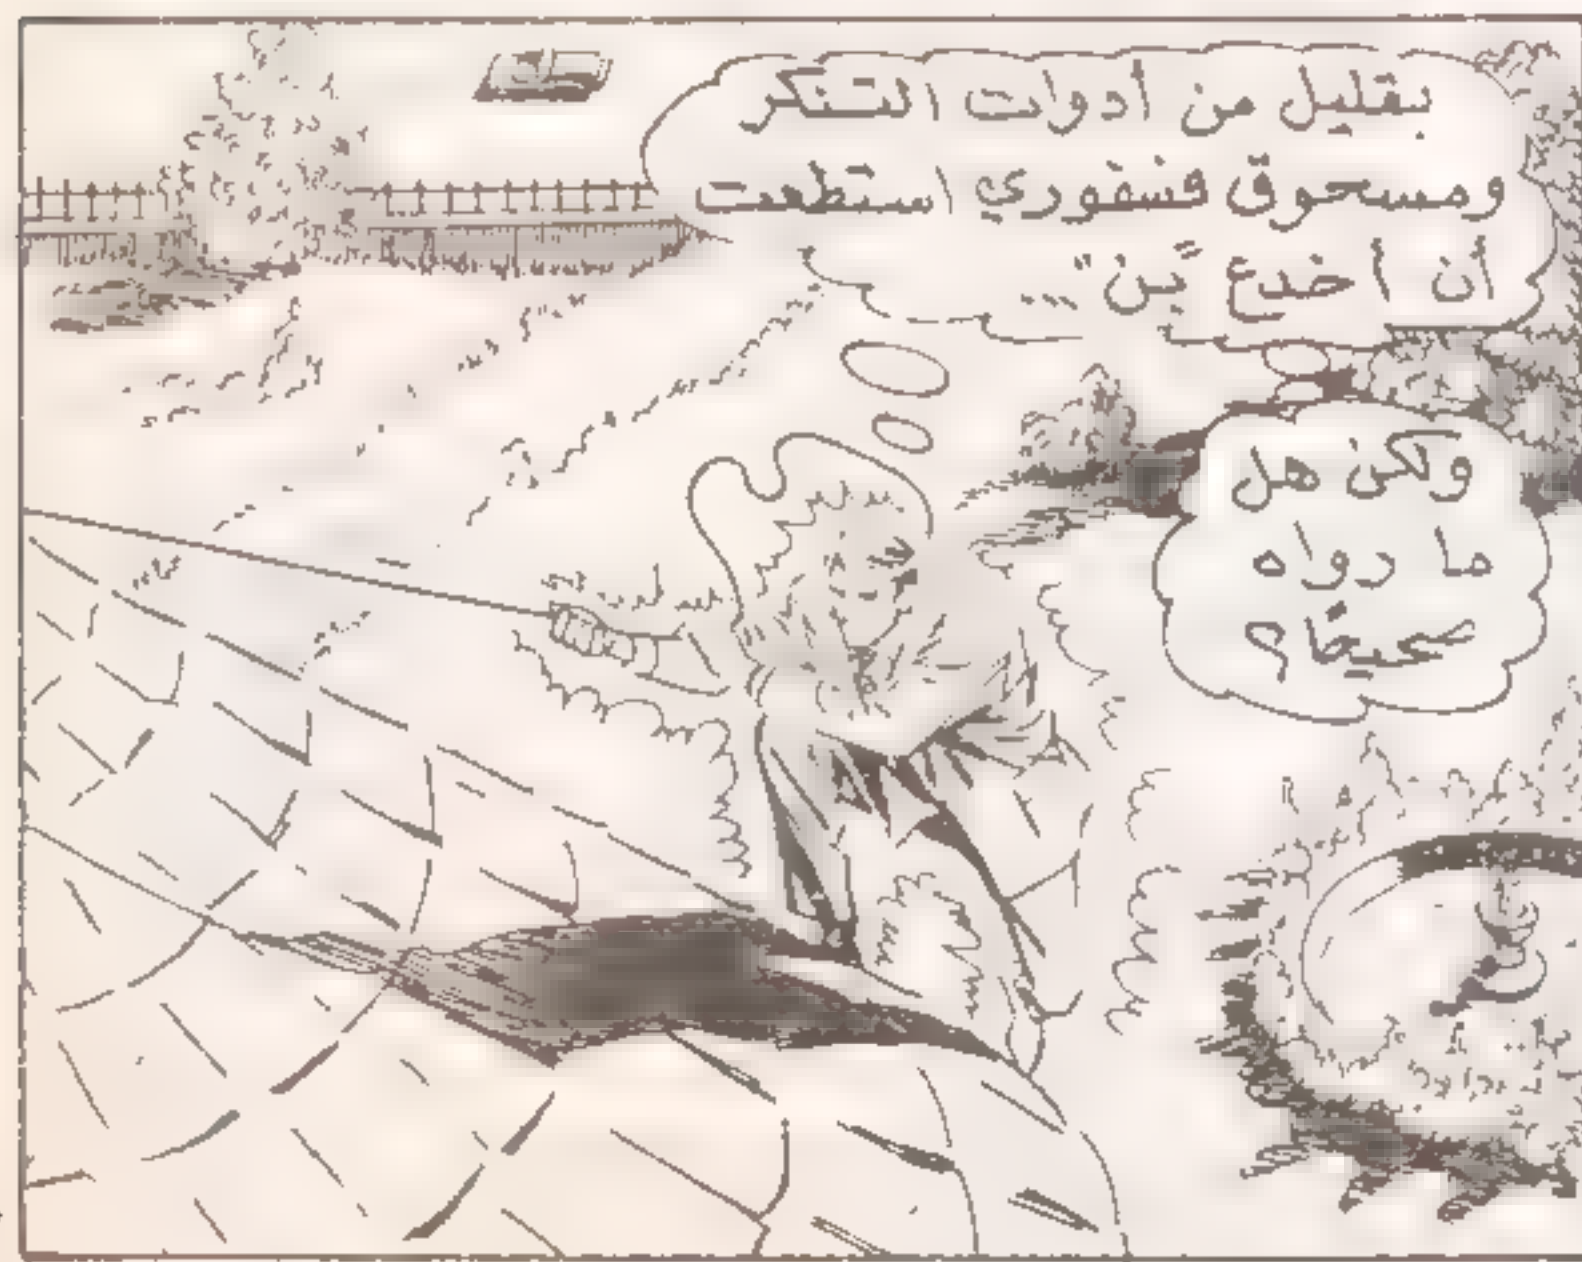 بقليل من أدوات التنكر
ومسحوق فسفوري استطعت
أن أخدع "بن" ...
ولكن هل
ما رواه
صحيحًا؟